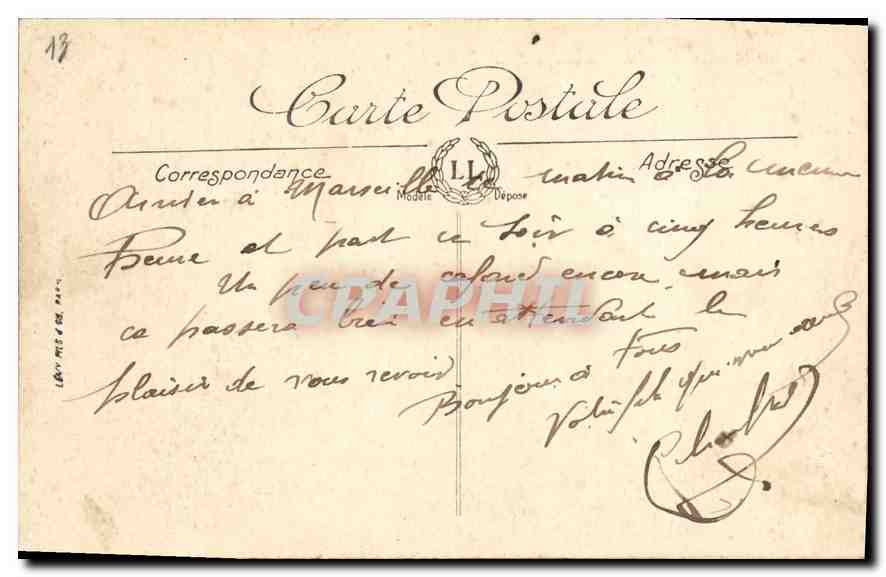 13
Carte Postale
Correspondance
LL
Adresse
Modèle Déposé
Arrivé à Marseille le matin à la même
heure et part ce soir à cinq heures
Un peu de cafard encore mais
ca passera bien en attendant le
plaisir de vous revoir
Bonjour à Tous
Votre fils qui vous
LEVY FILS & Cie, PARIS
CPAPHIL